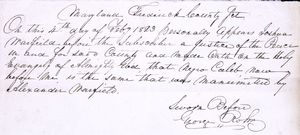 Maryland Frederick County Sct
On this 4th day of Feby 1823 Personally Appears Joshua
Warfield before the Subscriber a Justice of the Peace
in and for said County and made Oath on the Holy
Evangely of Almighty God that Negro Caleb now
before Me is the same that was Manumitted by
Alexander Warfield.
Sworn Before
George